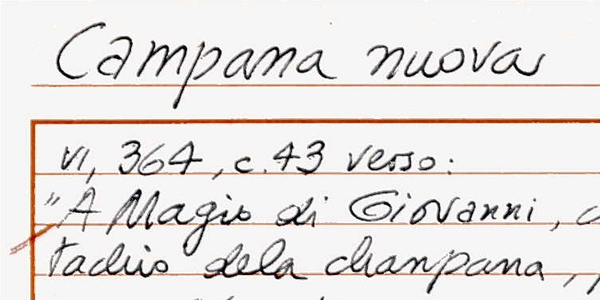 Campana nuova
VI, 364, c. 43 verso:
"A Magio di Giovanni,
dela chanpana,